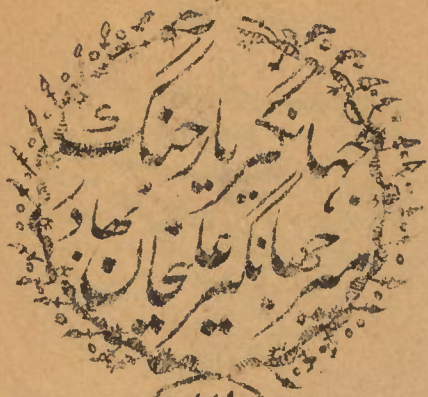 جہانگیر یار جنگ
میر جہانگیر علیخان بہادر